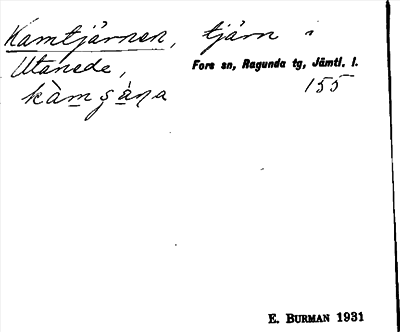 Kamtjärnen, tjärn i
Utanede,
Fors sn, Ragunda tg, Jämtl. l.
155
E. BURMAN 1931